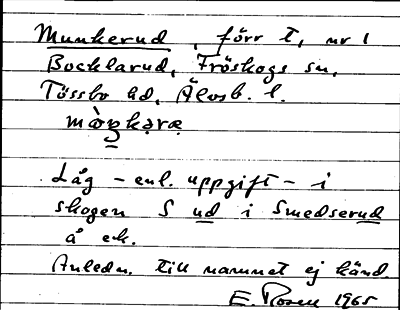 Munkerud, förr t, nr 1
Bocklarud, Fröskogs sn,
Tössbo hd, Älvsb. l.
mòŋkəræ
Låg – enl. uppgift – i
skogen S ud i Smedserud
å ek.
Anledn. till namnet ej känd.
E. Rosen 1965